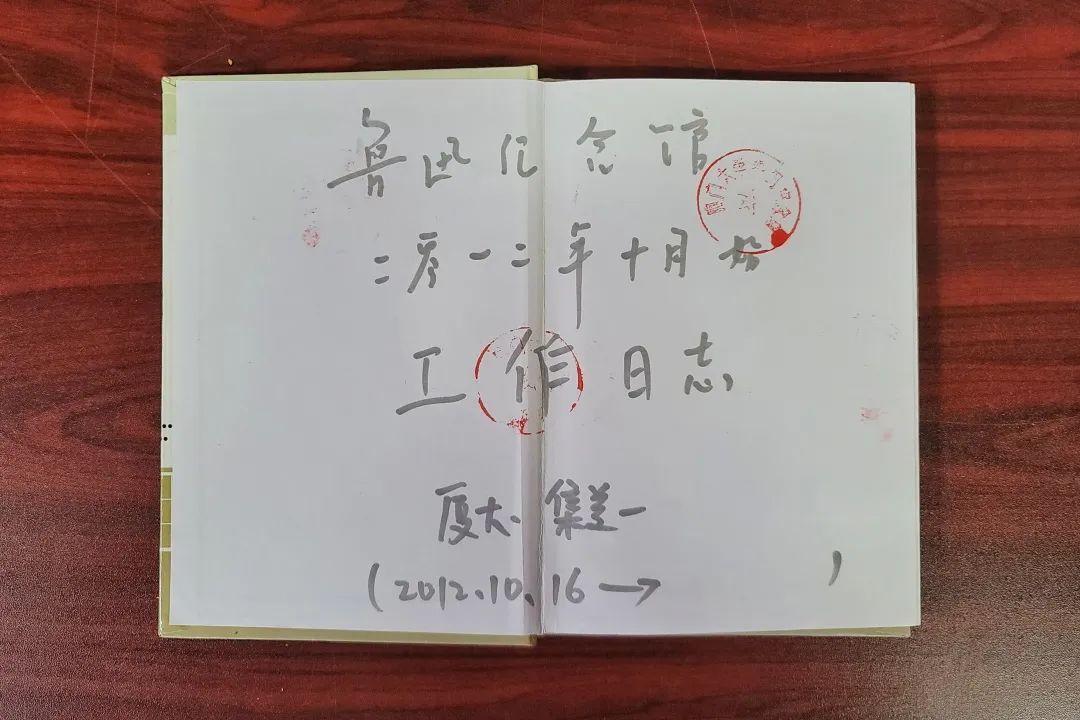 鲁迅纪念馆
二零一二年十月份
工作日志
厦大、集美一
(2012.10.16→ )